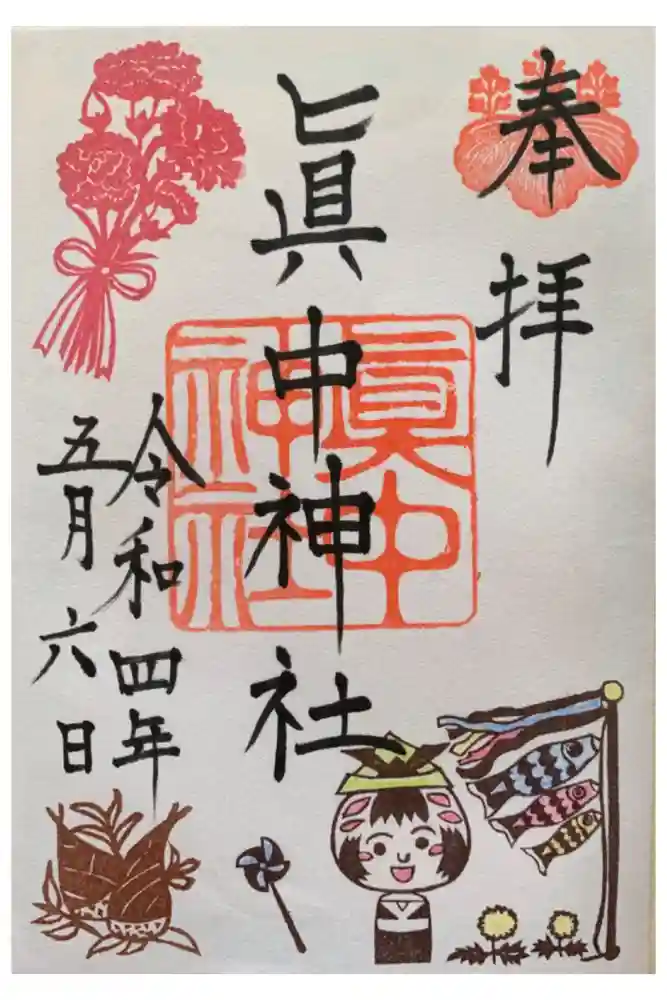 奉拝
眞中神社
令和四年
五月六日
眞中
神社